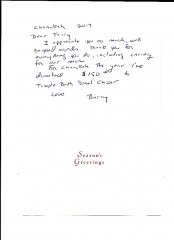 Chanukah 2017
Dear Terry,
I appreciate you so much, well
beyond words. Thank you for
everything you do, including caring
for our mom
For Chanukah this year I've
donated $150 to
Temple Beth Israel Choir
Love
Barry
Season's
Greetings